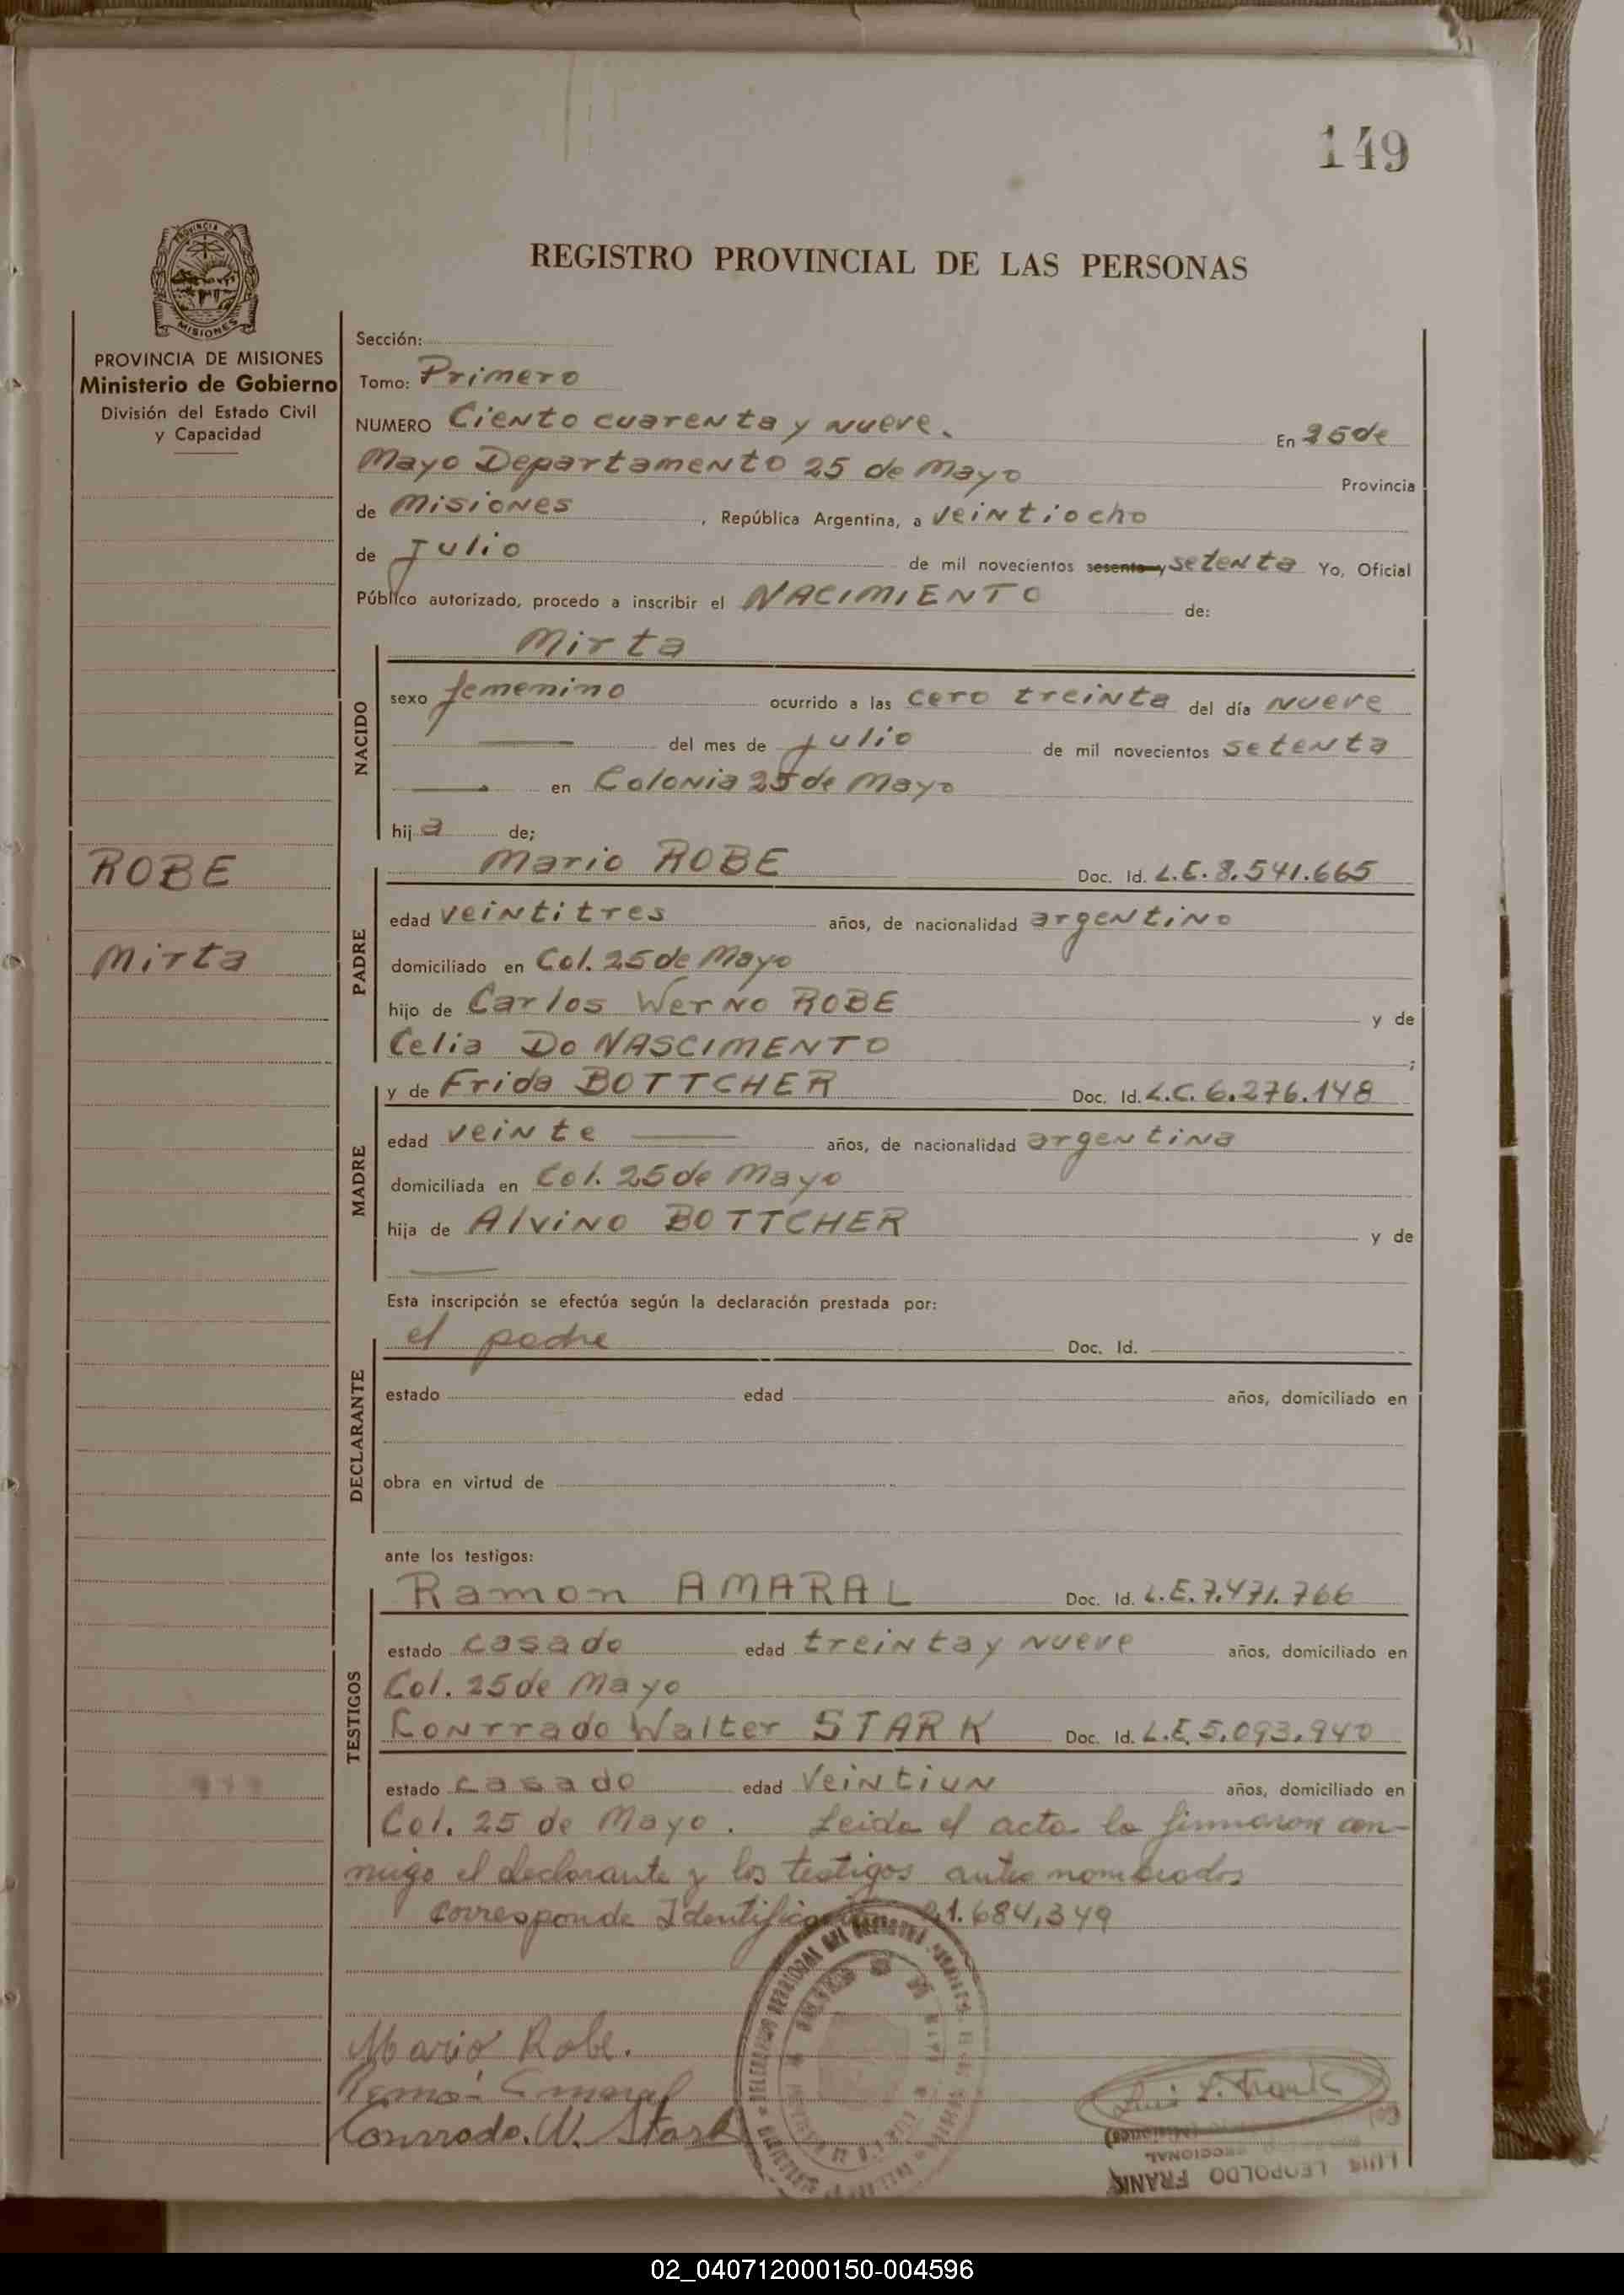 149
PROVINCIA DE
MISIONES
REGISTRO PROVINCIAL DE LAS PERSONAS
PROVINCIA DE MISIONES
Ministerio de Gobierno
División del Estado Civil
y Capacidad
ROBE
Mirta
Sección:
Tomo: Primero
NUMERO Ciento cuarenta y nueve. En 25 de
Mayo Departamento 25 de Mayo Provincia
de Misiones, República Argentina, a veintiocho
de Julio de mil novecientos sesenta y setenta Yo, Oficial
Público autorizado, procedo a inscribir el NACIMIENTO de:
NACIDO
Mirta
sexo femenino ocurrido a las cero treinta del día nueve
del mes de julio de mil novecientos setenta
en Colonia 25 de Mayo
hija de;
PADRE
Mario ROBE Doc. Id. L.E. 8.541.665
edad veintitres años, de nacionalidad argentino
domiciliado en Col. 25 de Mayo
hijo de Carlos Werno ROBE y de
Celia Do NASCIMENTO ;
MADRE
y de Frida BOTTCHER Doc. Id. L.C. 6.276.148
edad veinte años, de nacionalidad argentina
domiciliada en Col. 25 de Mayo
hija de Alvino BOTTCHER y de
Esta inscripción se efectúa según la declaración prestada por:
DECLARANTE
el padre Doc. Id.
estado edad años, domiciliado en
obra en virtud de
ante los testigos:
TESTIGOS
Ramon AMARAL Doc. Id. L.E. 7.471.766
estado casado edad treinta y nueve años, domiciliado en
Col. 25 de Mayo
Conrrado Walter STARK Doc. Id. L.E. 5.093.940
estado casado edad Veintiun años, domiciliado en
Col. 25 de Mayo. Leida el acta la firmaron con-
migo el declarante y los testigos antes nombrados
Corresponde Identificación 21.684,349
Mario Robe.
Ramón Amaral
Conrrado. W. Stark
Luis L. Frank
LUIS LEOPOLDO FRANK
02_040712000150-004596